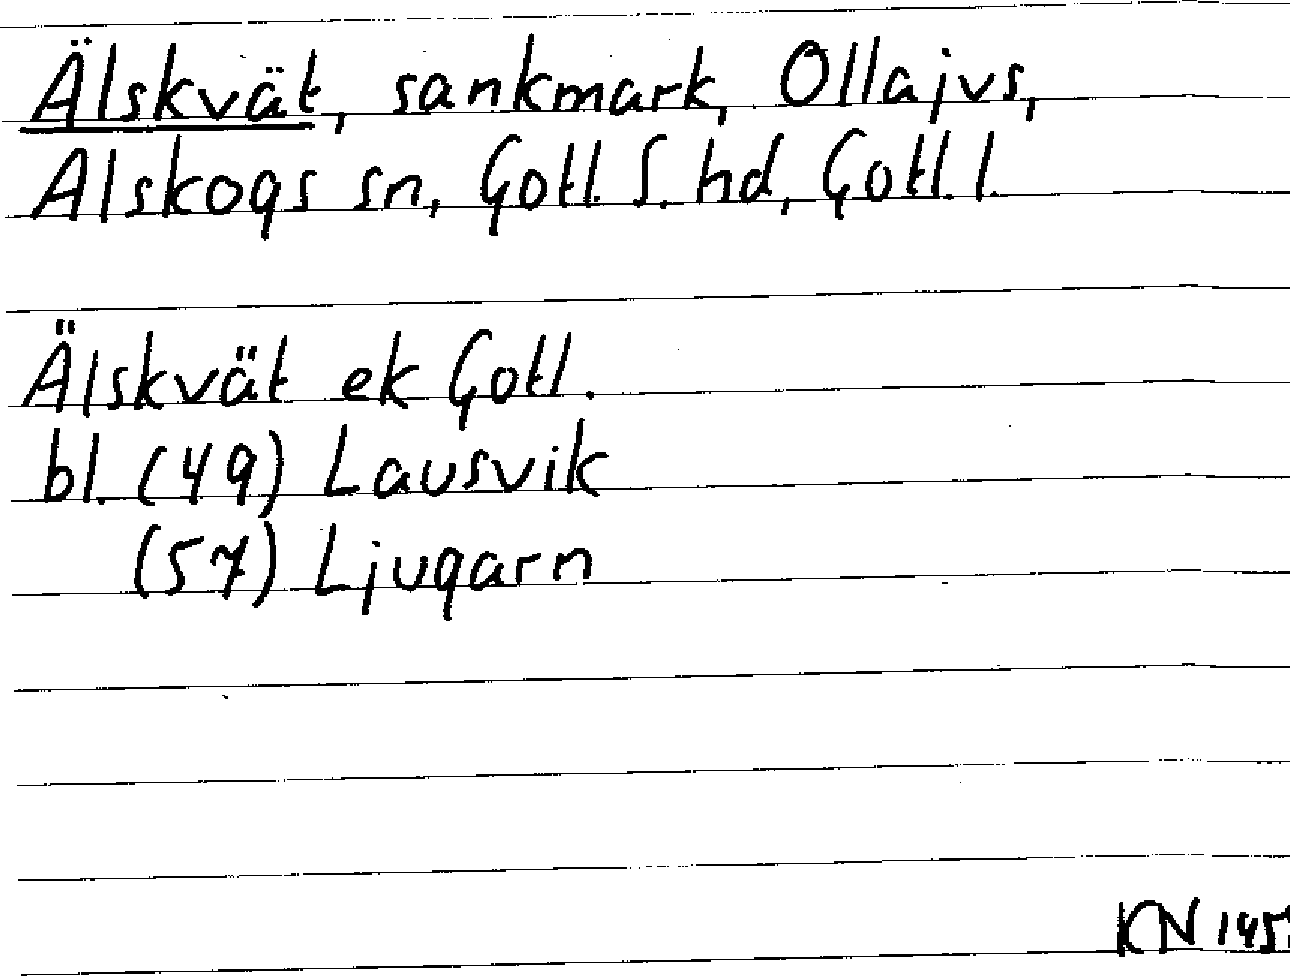 Älskvät, sankmark, Ollajvs,
Alskogs sn, Gotl. S. hd, Gotl. l.
Älskvät ek Gotl.
bl. (49) Lausvik
(57) Ljugarn
KN 145